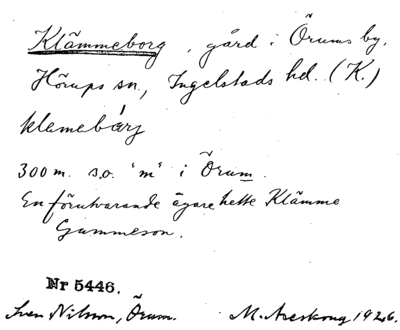 Klämmeborg, gård i Örums by,
Hörups sn., Ingelstads hd. (K.)
klamebárj
300 m. s.o. "m" i Örum.
En förutvarande ägare hette Klämme
Gummeson.
Nr 5446.
Sven Nilsson, Örum. M. Areskoug 1926.